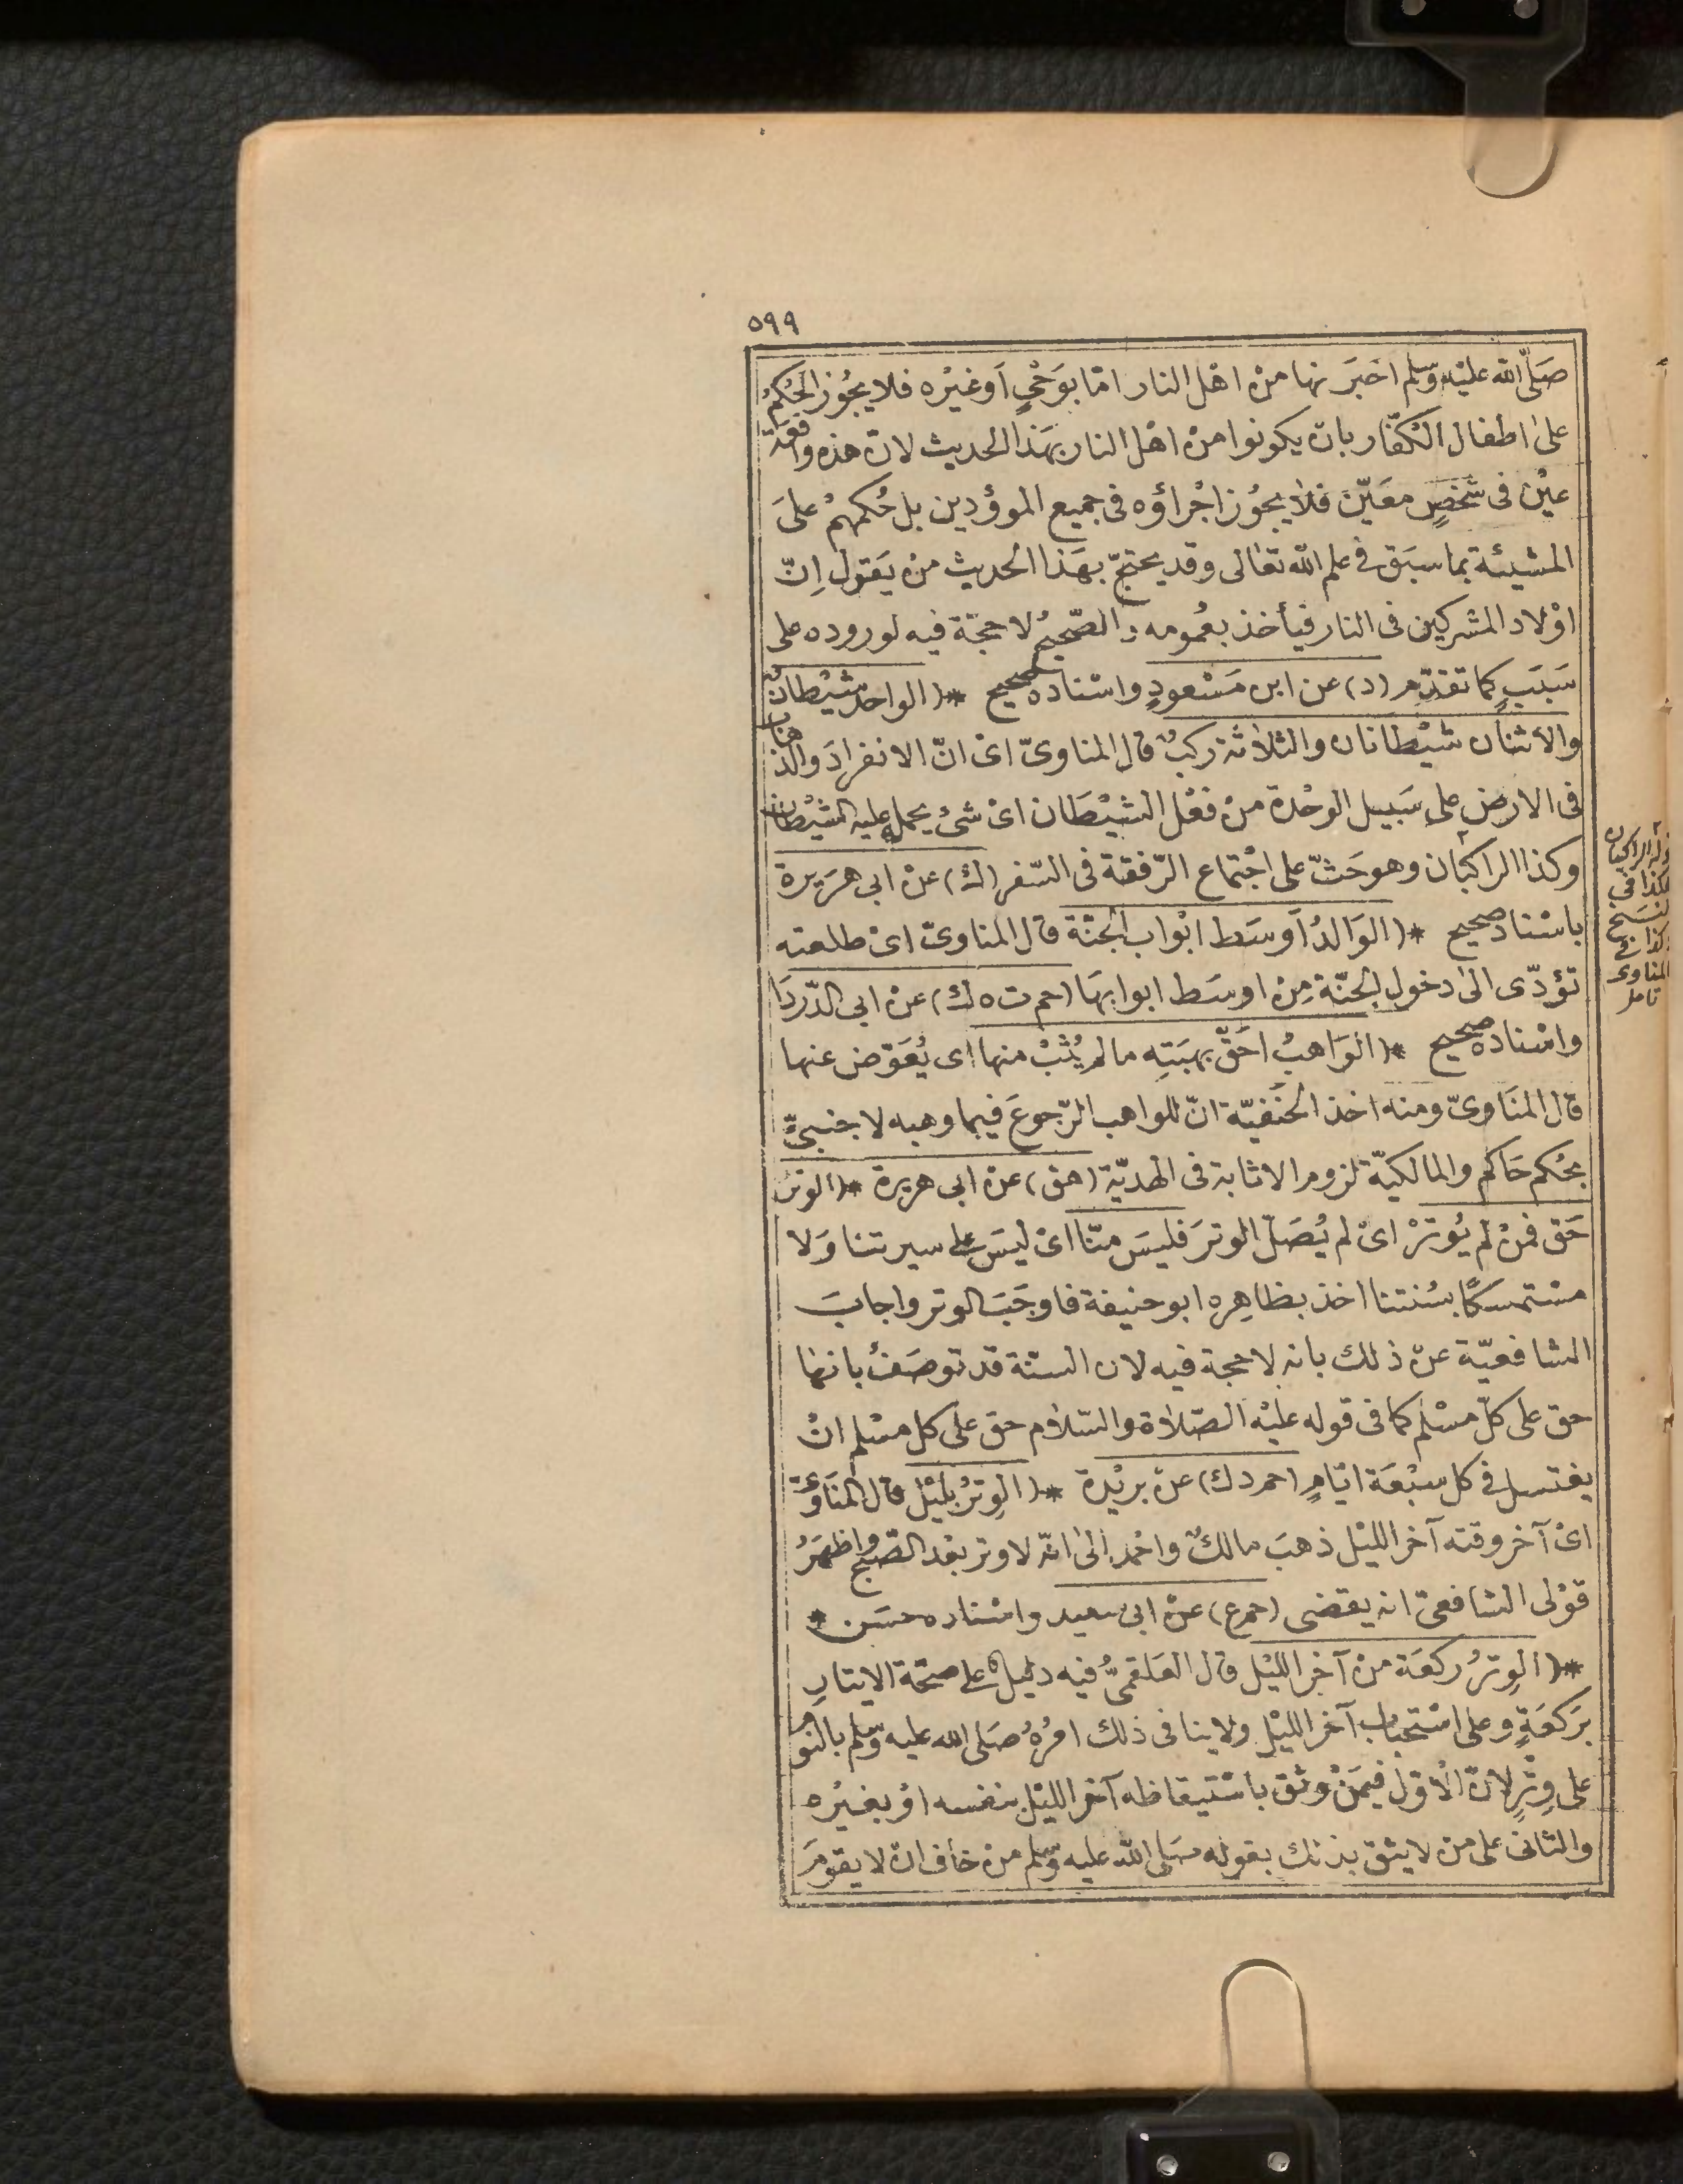 ٥٩٩
صَلّى الله عليْه وسّلم اخبَر نها منْ اهْل النار امّا بوَحْيٍ اَوغيْره فلا يجُوز الحُكمُ
علىٰ اطفال الكفّار بانّ يكونوا منْ اهْل النار بهَذا الحديث لانّ هذه واقعَة
عيْن فى شَخصٍ معَيّن فلاٰ يجُوز اجْراؤه فى جميع الموؤدين بل حُكمهُمْ علىَ
المشيئة بما سبَق فى علم الله تعَالى وقد يحتجّ بهَذا الحديث منْ يَقول اِنّ
اوْلاد المشركين فى النار فيأخذ بعُمومه والصّحيحُ لاحجّة فيه لوروده على
سَببٍ كما تقدّم (د) عن ابن مَسْعودٍ واسْناده صحيح * (الواحد شيْطانٌ
والاثنان شيْطانان والثلاٰثة ركبٌ قال المناوىّ اىْ انّ الانفرادَ والذهاب
فى الارض على سَبيل الوحْدة منْ فعْل الشيْطَان اىْ شىْ يحمله عليه الشيْطان
وكذا الراكبَان وهو حَثّ على اجْتماع الرّفقة فى السّفر (ك) عنْ ابى هرَيرة
باسْناد صحيح * (الوَالدُ اَوسَط ابْواب الجنّة قال المناوىّ اىْ طلعته
تؤدّى الىٰ دخول الجنّة مِنْ اوسَط ابوابهَا (حم ت ه ك) عنْ ابى الدّردَا
واسْناده صحيح * (الوَاهبُ احَقّ بهبَتِه مالم يُثبْ منها اى يُعَوّض عنها
قال المنَاوىّ ومنه اخذ الحنَفيّة انّ للواهب الرّجوعَ فيما وهبه لاجنبىّ
بحُكم حَاكم والمالكيّة لزوم الاثابة فى الهديّة (هق) عنْ ابى هريرة * (الوتر
حَق فمنْ لم يُوترْ اىْ لم يُصَلّ الوترَ فليسَ منّا اىْ ليسَ على سيرتنا وَلا
مسْتمسكًا بسُنتنا اخذ بظاهِره ابوحنيفة فاوجَبَ الوتر واجابَ
الشافعيّة عنْ ذلك بانه لاحجة فيه لان السنّة قد توصَفُ بانهٰا
حق على كلّ مسْلم كما فى قوله عليْه الصّلاٰة والسّلاٰم حق على كل مسْلم انْ
يغتسل فى كل سبْعَة ايّامٍ (حم د ك) عنْ بريْدة * (الوِترُ بليْل قال المنَاوىّ
اىْ آخر وقته آخر الليْل ذهبَ مالكٌ واحْمد الىٰ انّه لاوتر بعْد الصّبْح واظهَرُ
قوْلى الشافعىّ انه يقضى (حم ع) عنْ ابى سعيد واسْناده حسَن *
* (الوِترُ ركعَة منْ آخر الليْل قال العَلقمىُّ فيه دليل على صحّة الايتارِ
برَكعَةٍ وعلى اسْتحبَاب آخر الليْل ولاينافى ذلك امْرُهُ صَلى الله عليه وسّلم بالنوم
على وِترٍ لانّ الاْوّل فيمَنْ وثق باسْتيقاظه آخر الليْل بنفسه اوْ بغيْره
والثانى على من لايثق بذلك بقوله صَلى الله عليه وسّلم منْ خاف انْ لا يقومَ
الراكبان
هكذا فى
نسخ
وكذا فى
المناوى
تامل